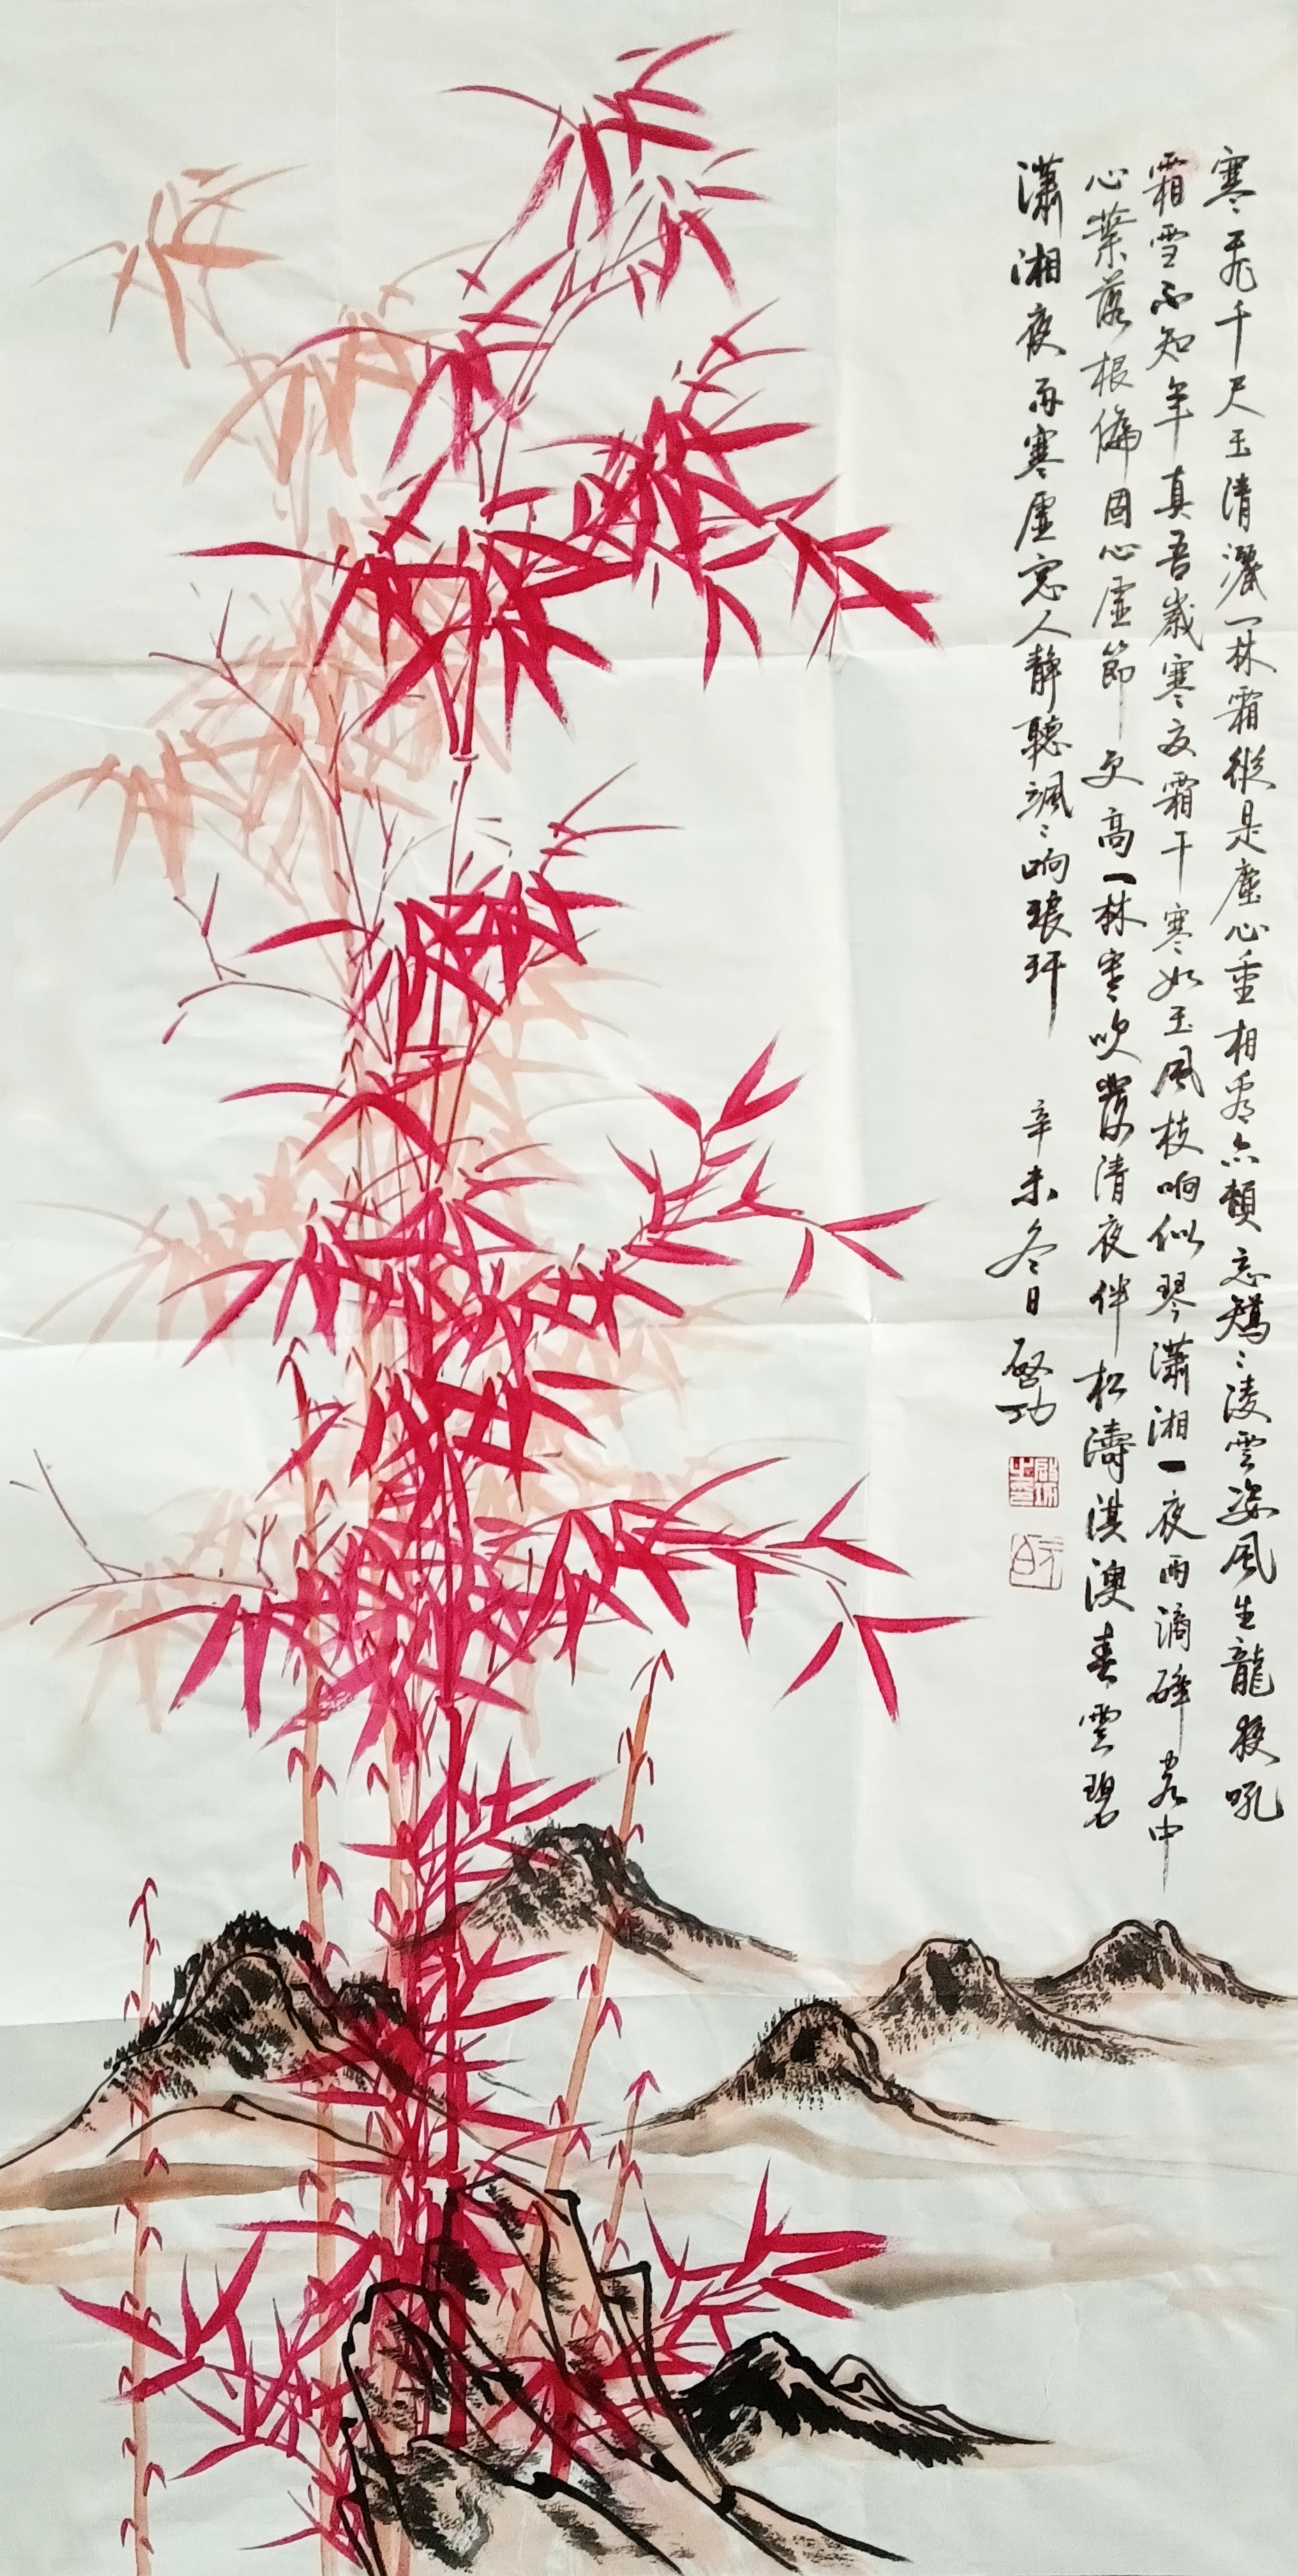 寒飛千尺玉清灑一林霜縱是塵心重相看亦頓忘矯〻凌雲姿風生龍夜吼
霜雪不知年真吾歲寒友霜干寒如玉風枝响似琴瀟湘一夜雨滴碎客中
心葉落根偏固心虛節更高一林寒吹發清夜伴松濤淇澳春雲碧
瀟湘夜雨寒虛窓人靜聽颯〻响琅玕
辛未冬日 啓功
啟功之印
元白